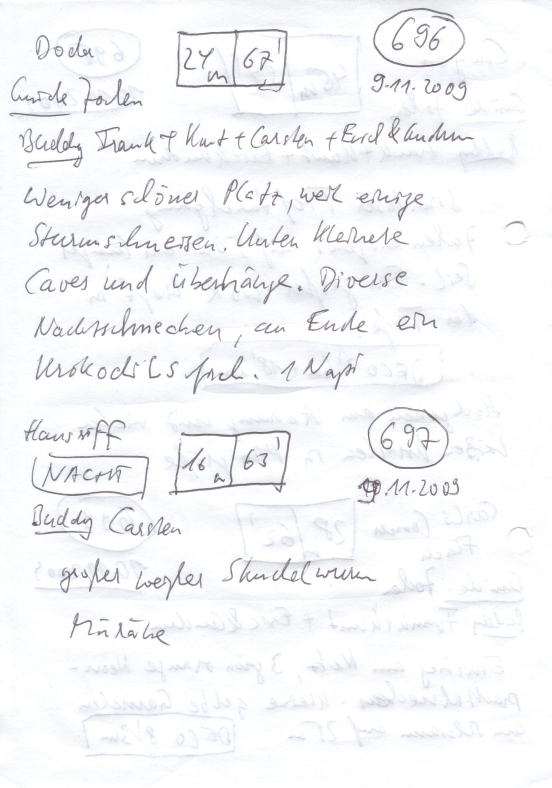 Doda 24m 67' 696
9.11.2009
Guide Joden
Buddy Frank + Kurt + Carsten + Emil &
weniger schöner Platz, weil einige
Sturmschneisen. Unten kleinere
Caves und Überhänge. Diverse
Nacktschnecken, am Ende ein
Krokodilsfisch. 1 Napi
Hausriff 16m 63' 697
NACHT 9.11.2009
Buddy Carsten
großer weißer Strudelwurm
Muräne